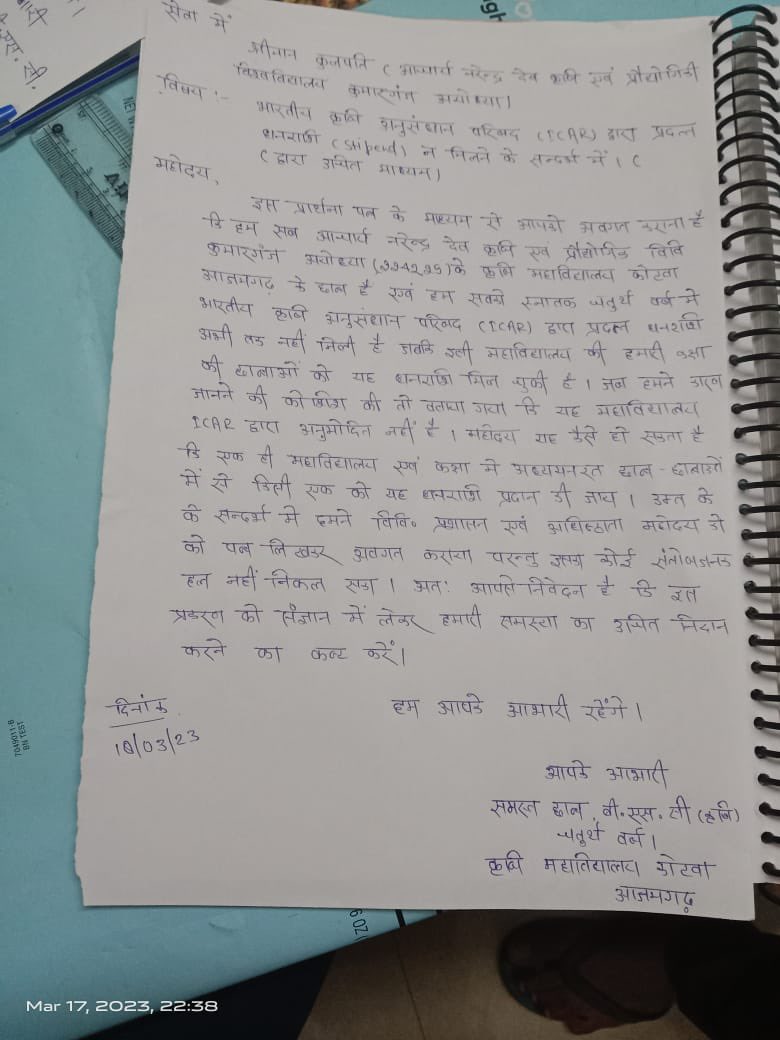 सेवा में
श्रीमान कुलपति ( आचार्य नरेन्द्र देव कृषि एवं प्रौद्योगिकी
विश्वविद्यालय कुमारगंज अयोध्या।
विषय :- भारतीय कृषि अनुसंधान परिषद (ICAR) द्वारा प्रदत्त
धनराशि (stipend) न मिलने के सन्दर्भ में। (
( द्वारा उचित माध्यम)
महोदय,
इस प्रार्थना पत्र के माध्यम से आपको अवगत कराना है
कि हम सब आचार्य नरेन्द्र देव कृषि एवं प्रौद्योगिक विवि
कुमारगंज अयोध्या के कृषि महाविद्यालय कोटवा
आजमगढ़ के छात्र है एवं हम सबको स्नातक चतुर्थ वर्ष में
भारतीय कृषि अनुसंधान परिषद (ICAR) द्वारा प्रदत्त धनराशि
अभी तक नहीं मिली है जबकि इसी महाविद्यालय की हमारी कक्षा
की छात्राओं को यह धनराशि मिल चुकी है । जब हमने कारण
जानने की कोशिश की तो बताया गया कि यह महाविद्यालय
ICAR द्वारा अनुमोदित नहीं है । महोदय यह कैसे हो सकता है
कि एक ही महाविद्यालय एवं कक्षा में अध्ययनरत छात्र-छात्राओं
में से किसी एक को यह धनराशि प्रदान की जाय । उक्त के
के सन्दर्भ में हमने विवि० प्रशासन एवं अधिष्ठाता महोदय को
को पत्र लिखकर अवगत कराया परन्तु इसका कोई संतोषजनक
हल नहीं निकल सका । अतः आपसे निवेदन है कि इस
प्रकरण को संज्ञान में लेकर हमारी समस्या का उचित निदान
करने का कष्ट करें।
हम आपके आभारी रहेंगे ।
दिनांक
18/03/23
आपके आभारी
समस्त छात्र, बी.एस.सी (कृषि)
चतुर्थ वर्ष ।
कृषि महाविद्यालय कोटवा
आजमगढ़
BN TEST
Mar 17, 2023, 22:38